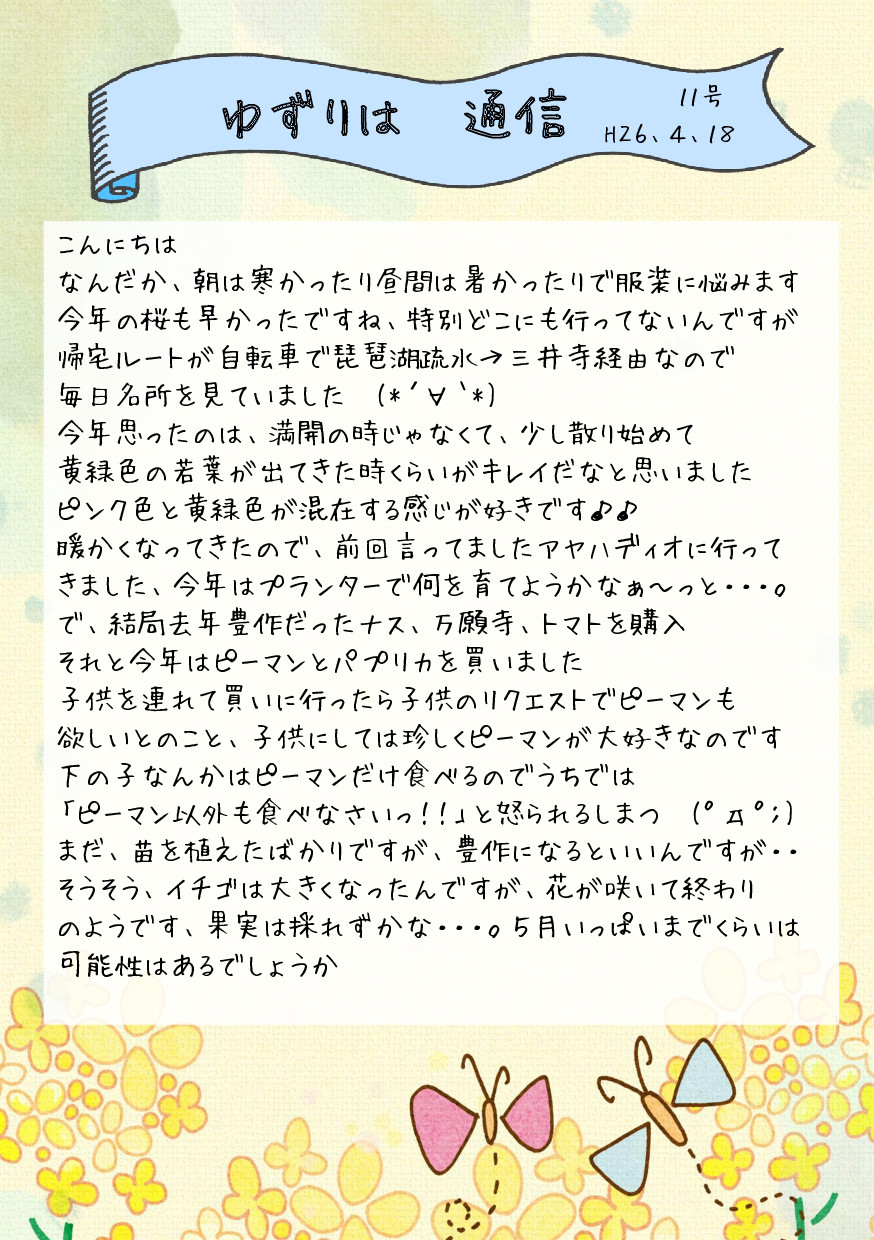 ゆずりは 通信
11号
H26、4、18
こんにちは
なんだか、朝は寒かったり昼間は暑かったりで服装に悩みます
今年の桜も早かったですね、特別どこにも行ってないんですが
帰宅ルートが自転車で琵琶湖疏水→三井寺経由なので
毎日名所を見ていました (*´∀｀*)
今年思ったのは、満開の時じゃなくて、少し散り始めて
黄緑色の若葉が出てきた時くらいがキレイだなと思いました
ピンク色と黄緑色が混在する感じが好きです♪♪
暖かくなってきたので、前回言ってましたアヤハディオに行って
きました、今年はプランターで何を育てようかなぁ～っと・・・。
で、結局去年豊作だったナス、万願寺、トマトを購入
それと今年はピーマンとパプリカを買いました
子供を連れて買いに行ったら子供のリクエストでピーマンも
欲しいとのこと、子供にしては珍しくピーマンが大好きなのです
下の子なんかはピーマンだけ食べるのでうちでは
「ピーマン以外も食べなさいっ！！」と怒られるしまつ (ﾟдﾟ;)
まだ、苗を植えたばかりですが、豊作になるといいんですが・・
そうそう、イチゴは大きくなったんですが、花が咲いて終わり
のようです、果実は採れずかな・・・。5月いっぱいまでくらいは
可能性はあるでしょうか